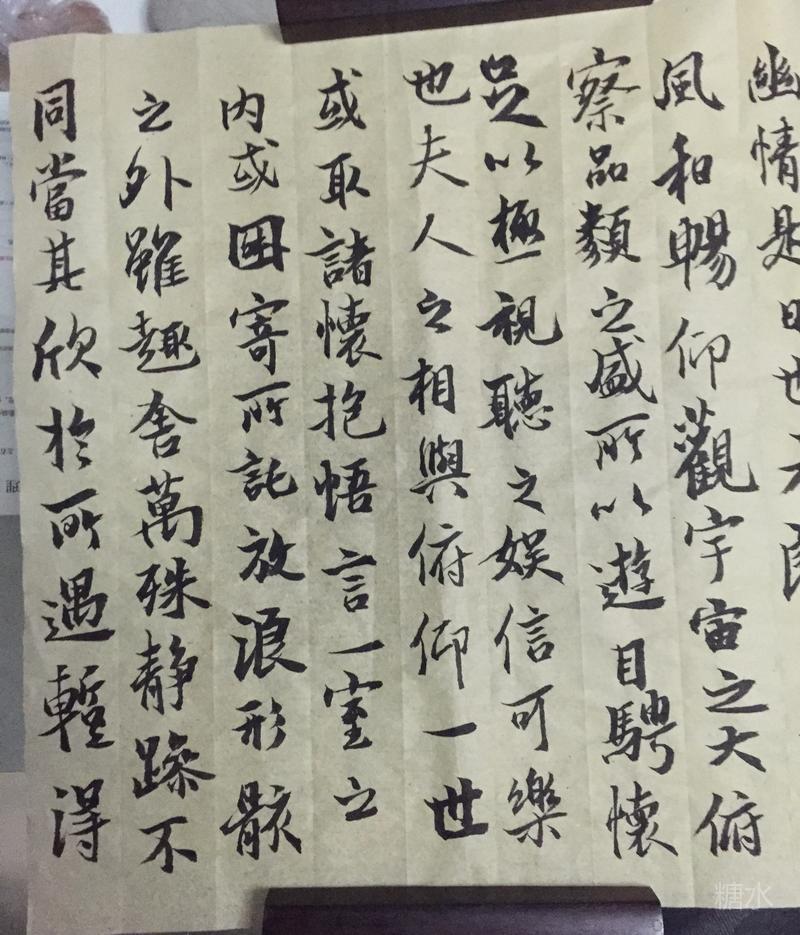 幽情是日也天朗
風和暢仰觀宇宙之大俯
察品類之盛所以遊目騁懷
足以極視聽之娱信可樂
也夫人之相與俯仰一世
或取諸懷抱悟言一室之
内或因寄所託放浪形骸
之外雖趣舍萬殊静躁不
同當其欣於所遇暫得
糖水